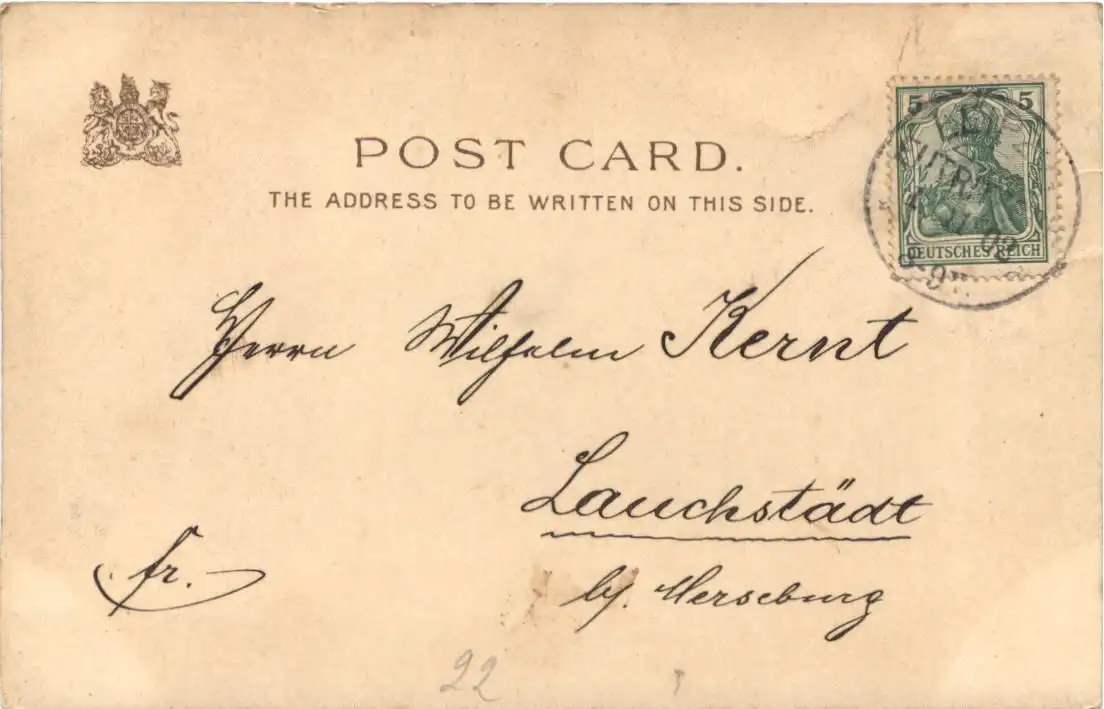 POST CARD.
THE ADDRESS TO BE WRITTEN ON THIS SIDE.
5 5
DEUTSCHES REICH
Herrn Wilhelm Kernt
Lauchstädt
b/. Merseburg
fr.
22